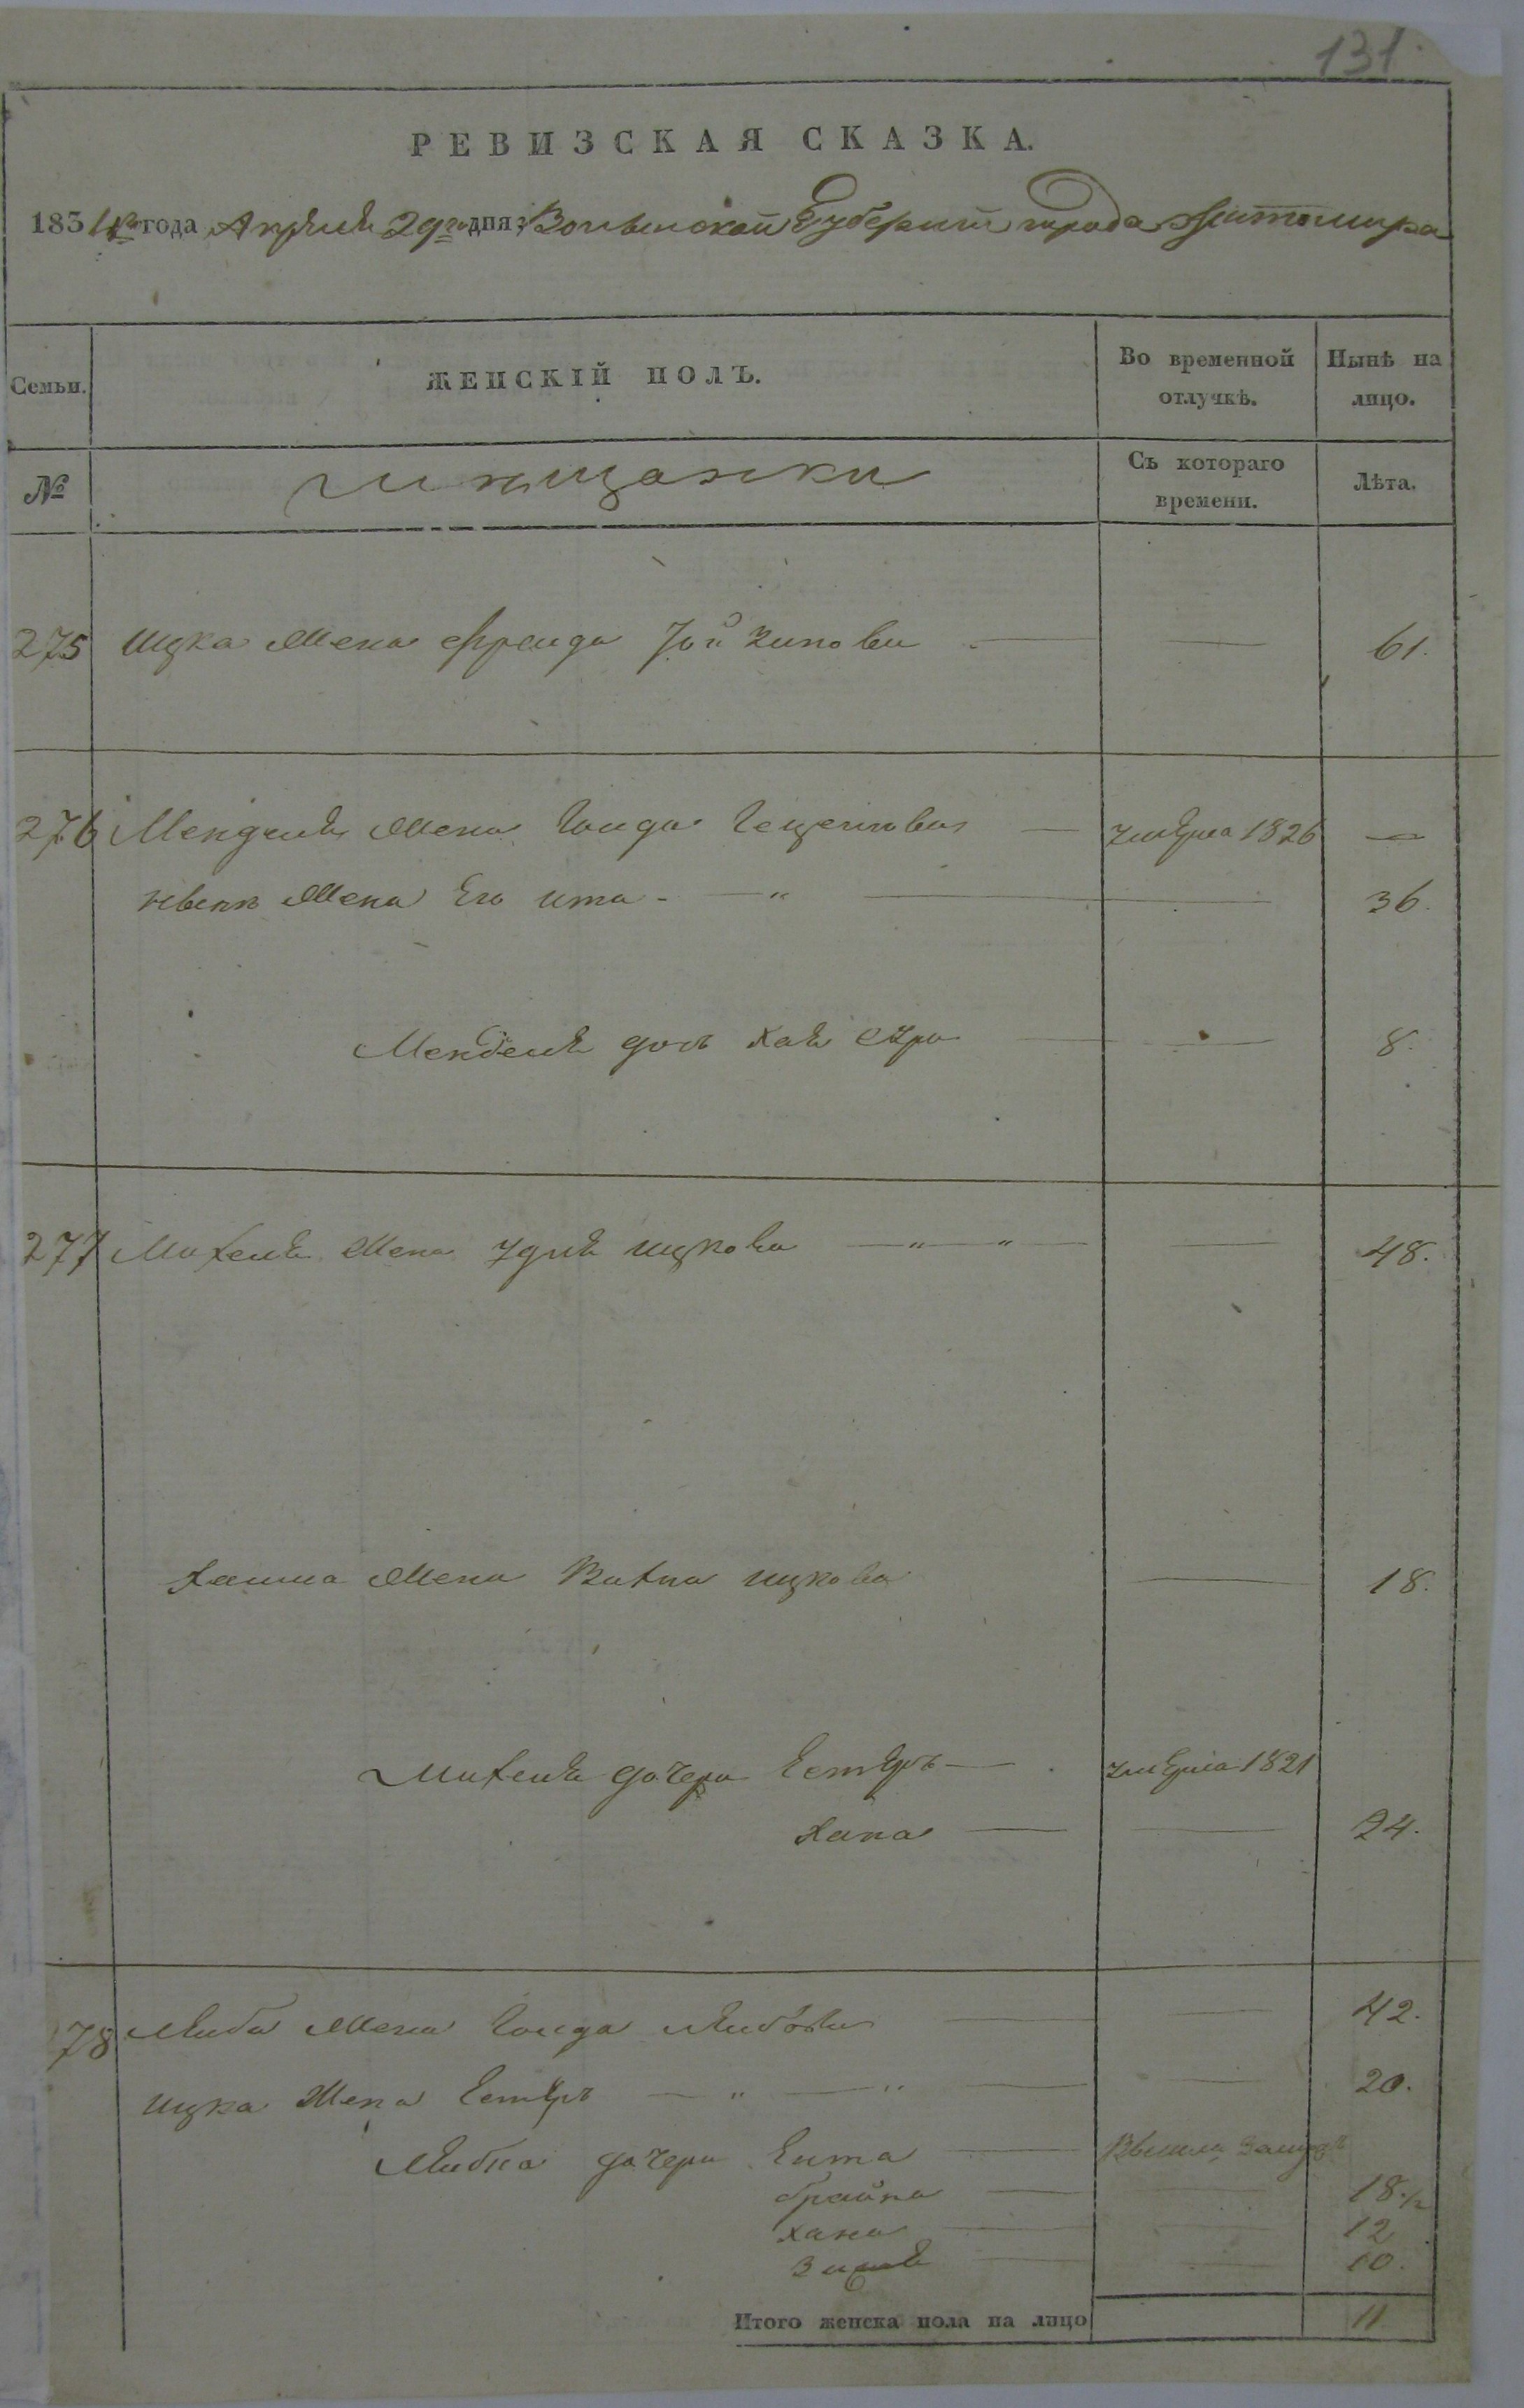 131.
РЕВИЗСКАЯ СКАЗКА.
1834го года Апреля 29го дня; Волынской Губернии города Житомира
Семьи.
ЖЕНСКІЙ ПОЛЪ.
Во временной отлучкѣ.
Нынѣ на лицо.
№
мещанки
Съ котораго времени.
Лѣта.
275 Ицка жена Фрейда — — 61.
276 Менделя жена Голда — умерла 1826 —
жена Его Ита — " — — 36.
Менделя дочь Хая Сура — — 8.
277 Михеля жена Удля Ицкова — " — " — — 48.
Хаима жена Ицкова — 18.
Михеля дочери Естеръ — умерла 1821
Хана — — 24.
78 Лейба жена Голда Лейбова — — 42.
Ицка жена Естеръ — " — " — — 20.
Лейбка дочери Ента — Вышла Замужъ
брайна — — 18 1/2
хана — — 12
— — 10.
Итого женска пола на лицо 11